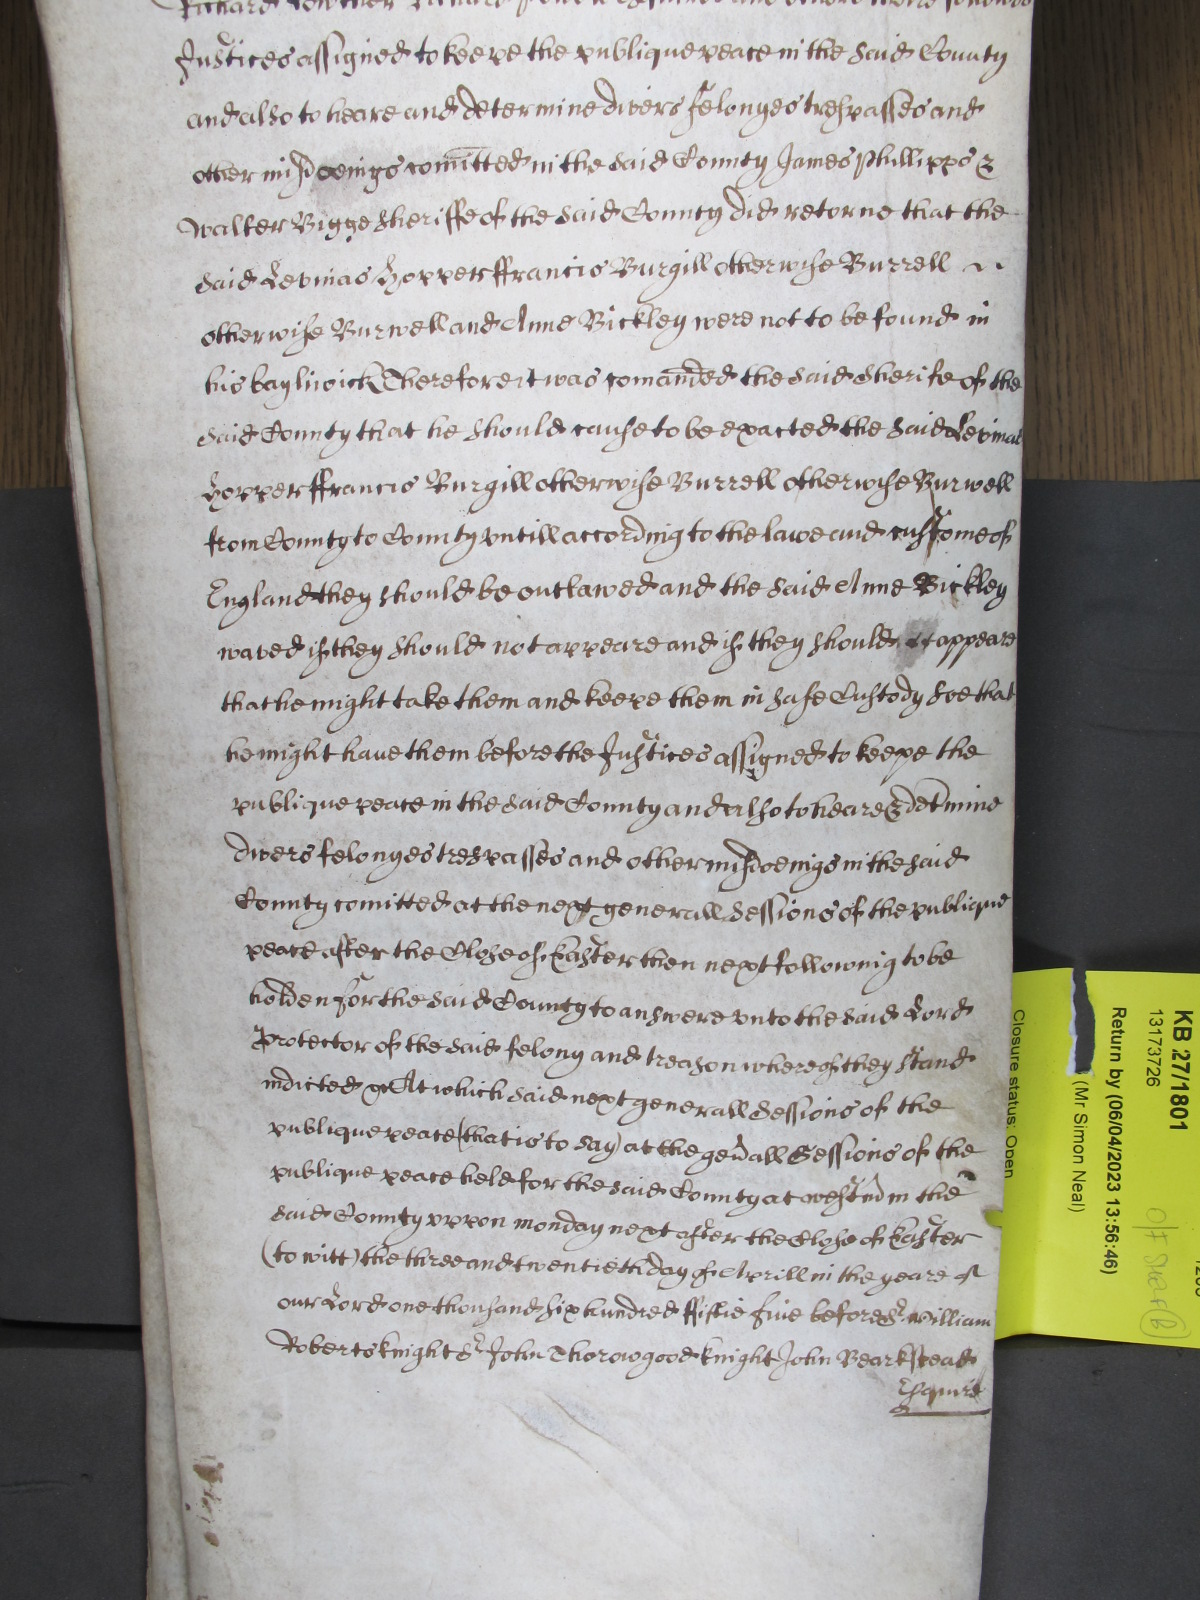 Richard Lowther Richard Powell Esquires and others theire fellowes
Justices assigned to keepe the publique peace in the said County
and also to heare and determine divers felonyes trespasses and
other misdoeings comitted in the said County James Phillipps &
Walter Bigge Sheriffe of the said County did retorne that the
said Levinas Hopper ffrancis Burgill otherwise Burrell
otherwise Burwell and Anne Bickley were not to be found in
his bayliwick Therefore it was comanded the said Sherife of the
said County that he should cause to be exacted the said Levinas
Hopper ffrancis Burgill otherwise Burrell otherwise Burwell
from County to County untill according to the lawe and custome of
England they should be outlawed and the said Anne Bickley
waved if they should not appeare and if they should appeare
that he might take them and keepe them in safe Custody soe that
he might have them before the Justices assigned to keepe the
publique peace in the said County and also to heare & detmine
divers felonyes trespasses and other misdoeings in the said
County comitted at the next generall Sessions of the publique
peace after the Close of Easter then next following to be
holden for the said County to answere unto the said Lord
Protector of the said felony and treason whereof they stand
indicted At which said next generall Sessions of the
publique peace (that is to say) at the genall Sessions of the
publique peace held for the said County at Westm in the
said County uppon monday next after the Close of Easter
(to witt) the three and twentieth day of Aprill in the yeare of
our Lord one thousand six hundred ffiftie five before Sr William
Roberts knight Sr John Thorowgood knight John Bearkstead
Esquire
KB 27/1801
13173726
Return by (06/04/2023 13:56:46)
(Mr Simon Neal)
Closure status: Open